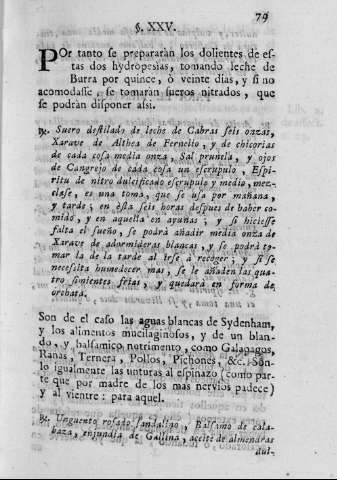 79
§. XXV.
POr tanto se prepararàn los dolientes de es-
tas dos hydropesias, tomando leche de
Burra por quince, ò veinte dias, y si no
acomodasse, se tomaràn sueros nitrados, que
se podràn disponer assi.
℞. Suero destilado de leche de Cabras seis onzas,
Xarave de Althea de Fernelio, y de chicorias
de cada cosa media onza, Sal prunela, y ojos
de Cangrejo de cada cosa un escrupulo, Espi-
ritu de nitro dulcificado escrupulo y medio, mez-
clese, es una toma, que se usa por mañana,
y tarde; en èsta seis horas despues de haber co-
mido, y en aquella en ayunas; y si hiciesse
falta el sueño, se podrà añadir media onza de
Xarave de adormideras blancas, y se podrà to-
mar la de la tarde al irse à recoger; y si se
necessita humedecer mas, se le añaden las qua-
tro simientes frias, y quedarà en forma de
orchata.
Son de el caso las aguas blancas de Sydenham,
y los alimentos mucilaginosos, y de un blan-
do, y balsamico nutrimento, como Galapagos,
Ranas, Ternera, Pollos, Pichones, &c. Son-
lo igualmente las unturas al espinazo (como par-
te que por madre de los mas nervios padece)
y al vientre: para aquel.
℞. Unguento rosado sandalino, Balsamo de cala-
baza, enjundia de Gallina, aceite de almendras
dul-